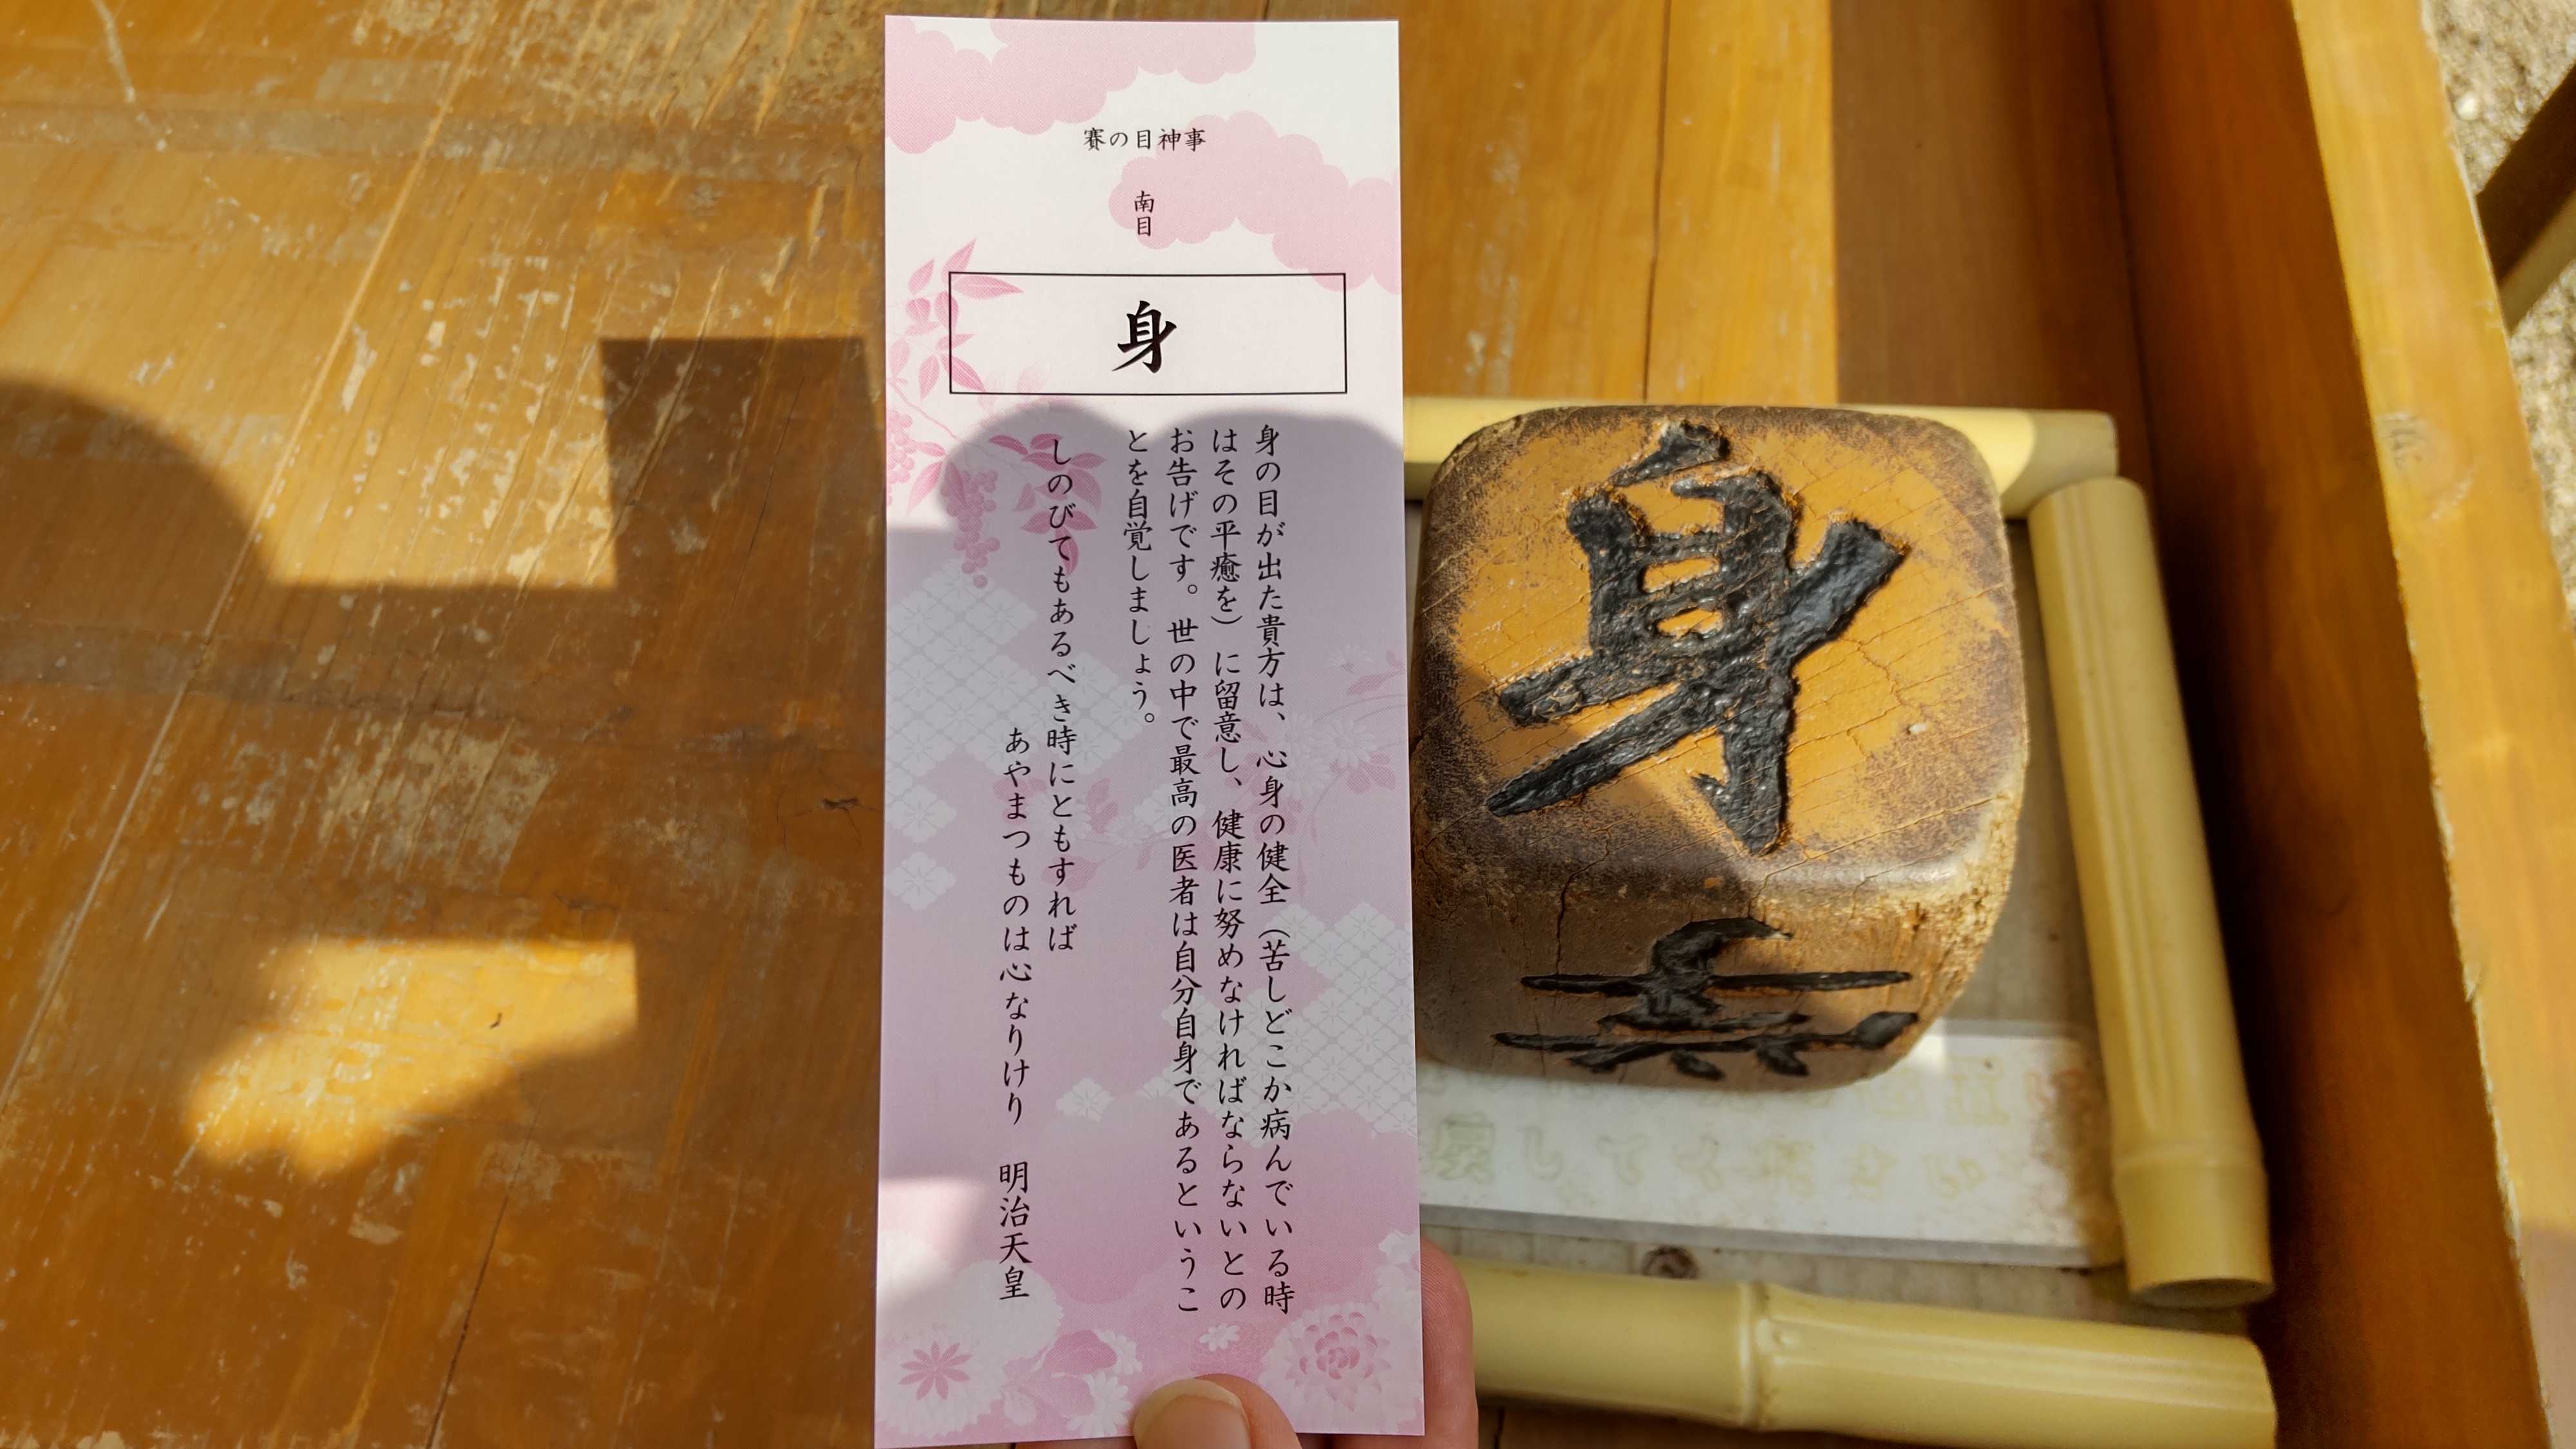 賽の目神事
南目
身
身の目が出た貴方は、心身の健全（苦しどこか病んでいる時
はその平癒を）に留意し、健康に努めなければならないとの
お告げです。世の中で最高の医者は自分自身であるというこ
とを自覚しましょう。
しのびてもあるべき時にともすれば
あやまつものは心なりけり　明治天皇
身